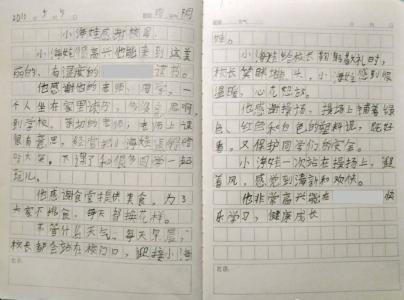 小海娃感谢校园
小海娃很高兴他能来到这美
丽的、有温度的 读书。
他感谢他的老师、同学。一
个人坐在家里读书,
到学校,的老师,老师上课
很有意思,经常把小海娃逗得哈
哈大笑。下课了和很多同学一起
玩儿。
他感谢食堂提供美食。为了
大家不挑食,每天都换花样。
不管什么天气,每天早晨,
校长都会站在校门口,迎接小海
娃。
小海娃给校长敬礼时,
校长笑眯眯地点头,小海娃感到很
温暖,心花怒放。
他感谢操场,操场上铺着绿
色、红色和白色的塑料,既好
看,又保护同学们的安全。
小海娃一次站在操场上,迎
着风,感觉到清新和欢快。
他非常高兴能在 快
乐学习,健康成长